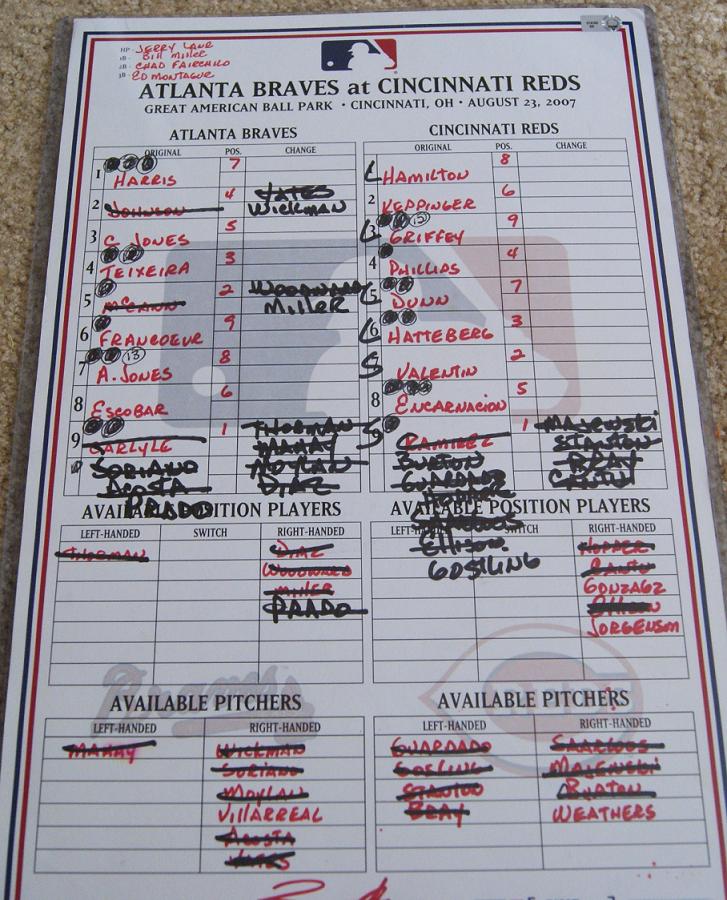 HP - JERRY LANE
1B - BILL MILLER
2B - CHAD FAIRCHILD
3B - ED MONTAGUE
ATLANTA BRAVES at CINCINNATI REDS
GREAT AMERICAN BALL PARK • CINCINNATI, OH • AUGUST 23, 2007
ATLANTA BRAVES
ORIGINAL POS. CHANGE
1 HARRIS 7
2 JOHNSON 4 YATES
WICKMAN
3 C. JONES 5
4 TEIXEIRA 3
5 MCCANN 2 WOODWARD
MILLER
6 FRANCOEUR 9
7 A. JONES 8
13
8 ESCOBAR 6
9 CARLYLE 1 THORMAN
SORIANO MAHAY
ACOSTA MOYLAN
PRADO DIAZ
CINCINNATI REDS
ORIGINAL POS. CHANGE
1 L HAMILTON 8
2 KEPPINGER 6
3 L GRIFFEY 9
4 PHILLIPS 4
5 L DUNN 7
6 L HATTEBERG 3
7 S VALENTIN 2
8 ENCARNACION 5
9 S RAMIREZ 1 MAJEWSKI
BURTON STANTON
GUARDADO BRAY
HOPPER CANTU
SAARLOOS
ELLISON
GOSLING
AVAILABLE POSITION PLAYERS
LEFT-HANDED SWITCH RIGHT-HANDED
THORMAN DIAZ
WOODWARD
MILLER
PRADO
AVAILABLE POSITION PLAYERS
LEFT-HANDED SWITCH RIGHT-HANDED
HOPPER
CANTU
GONZALEZ
ELLISON
JORGENSEN
AVAILABLE PITCHERS
LEFT-HANDED RIGHT-HANDED
MAHAY WICKMAN
SORIANO
MOYLAN
VILLARREAL
ACOSTA
YATES
AVAILABLE PITCHERS
LEFT-HANDED RIGHT-HANDED
GUARDADO SAARLOOS
GOSLING MAJEWSKI
STANTON BURTON
BRAY WEATHERS